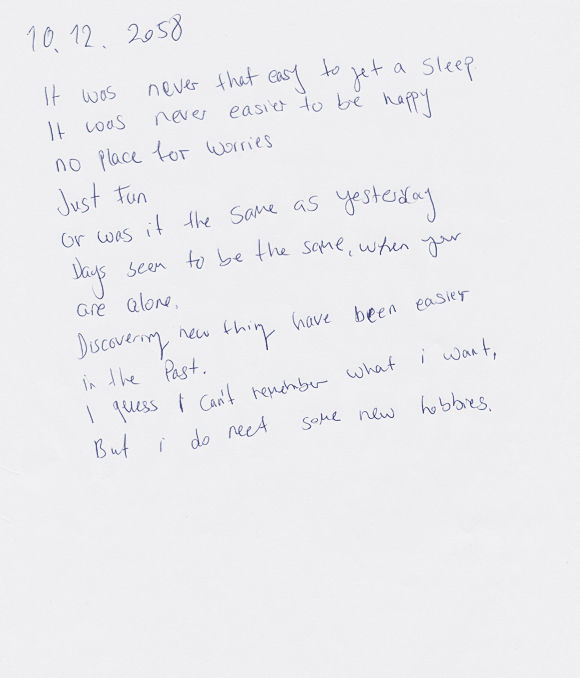 10. 12. 2058
It was never that easy to get a sleep
It was never easier to be happy
no place for worries
Just Fun
or was it the same as yesterday
Days seem to be the same, when your
are alone.
Discovering new thing have been easier
in the Past.
I guess I can't remember what i want,
But i do need some new hobbies.